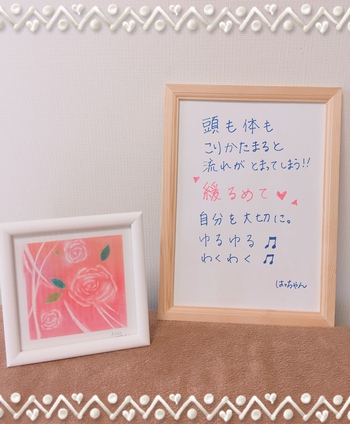 頭も体も
こりかたまると
流れがとまってしまう!!
緩るめて
自分を大切に。
ゆるゆる
わくわく
はっちゃん